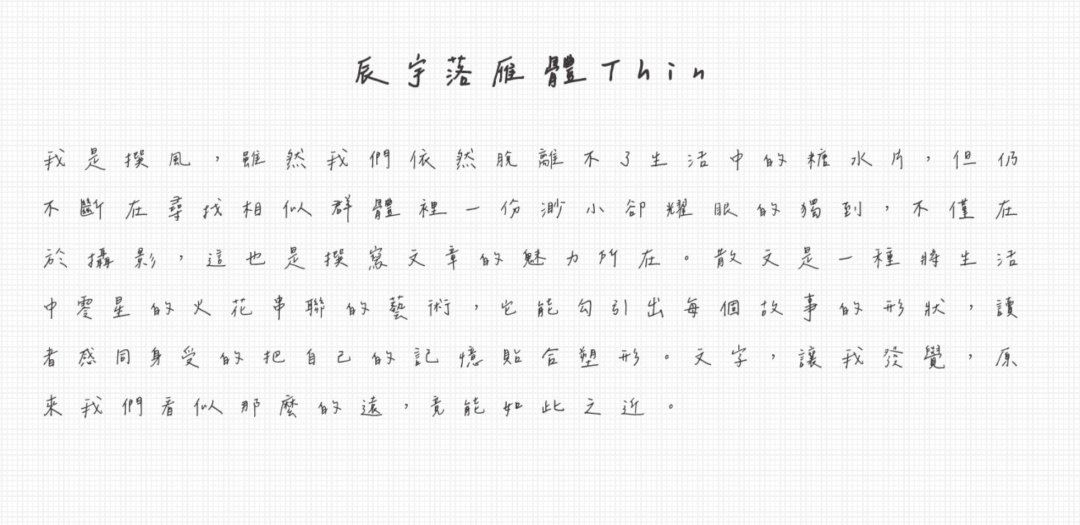 辰宇落雁體Thin
我是撰風，雖然我們依然脫離不了生活中的糖水片，但仍
不斷在尋找相似群體裡一份渺小卻耀眼的獨到，不僅在
於攝影，這也是撰寫文章的魅力所在。散文是一種將生活
中零星的火花串聯的藝術，它能勾引出每個故事的形狀，讀
者感同身受的把自己的記憶貼合塑形。文字，讓我發覺，原
來我們看似那麼的遠，竟能如此之近。